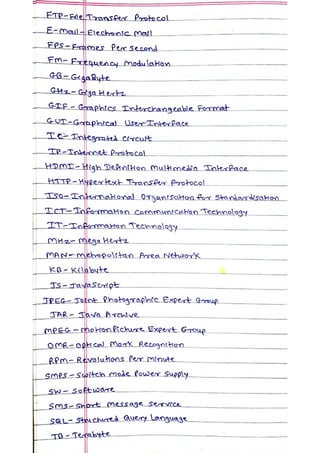 FTP-File Transfer Protocol
E-mail-Electronic Mail
FPS-Frames Per Second
Fm-Frequency Modulation
GB-GigaByte
GHz-Giga Hertz
GIF-Graphics Interchangeable Format
GUI-Graphical User Interface
IC-Integrated Circuit
IP-Internet Protocol
HDMI-High Definition Multimedia Interface
HTTP-Hypertext Transfer Protocol
ISO-International Organisation for Standardisation
ICT-Information Communication Technology
IT-Information Technology
MHz-Mega Hertz
MAN-metropolitan Area Network
KB-Kilobyte
JS-JavaScript
JPEG-Joint Photographic Expert Group
JAR-Java Archive
MPEG-motion Picture Expert Group
OMR-optical Mark Recognition
RPm-Revolutions Per Minute
SMPS-Switch mode Power Supply
SW-Software
SMS-Short Message Service
SQL-Structured Query Language
TB-Terabyte